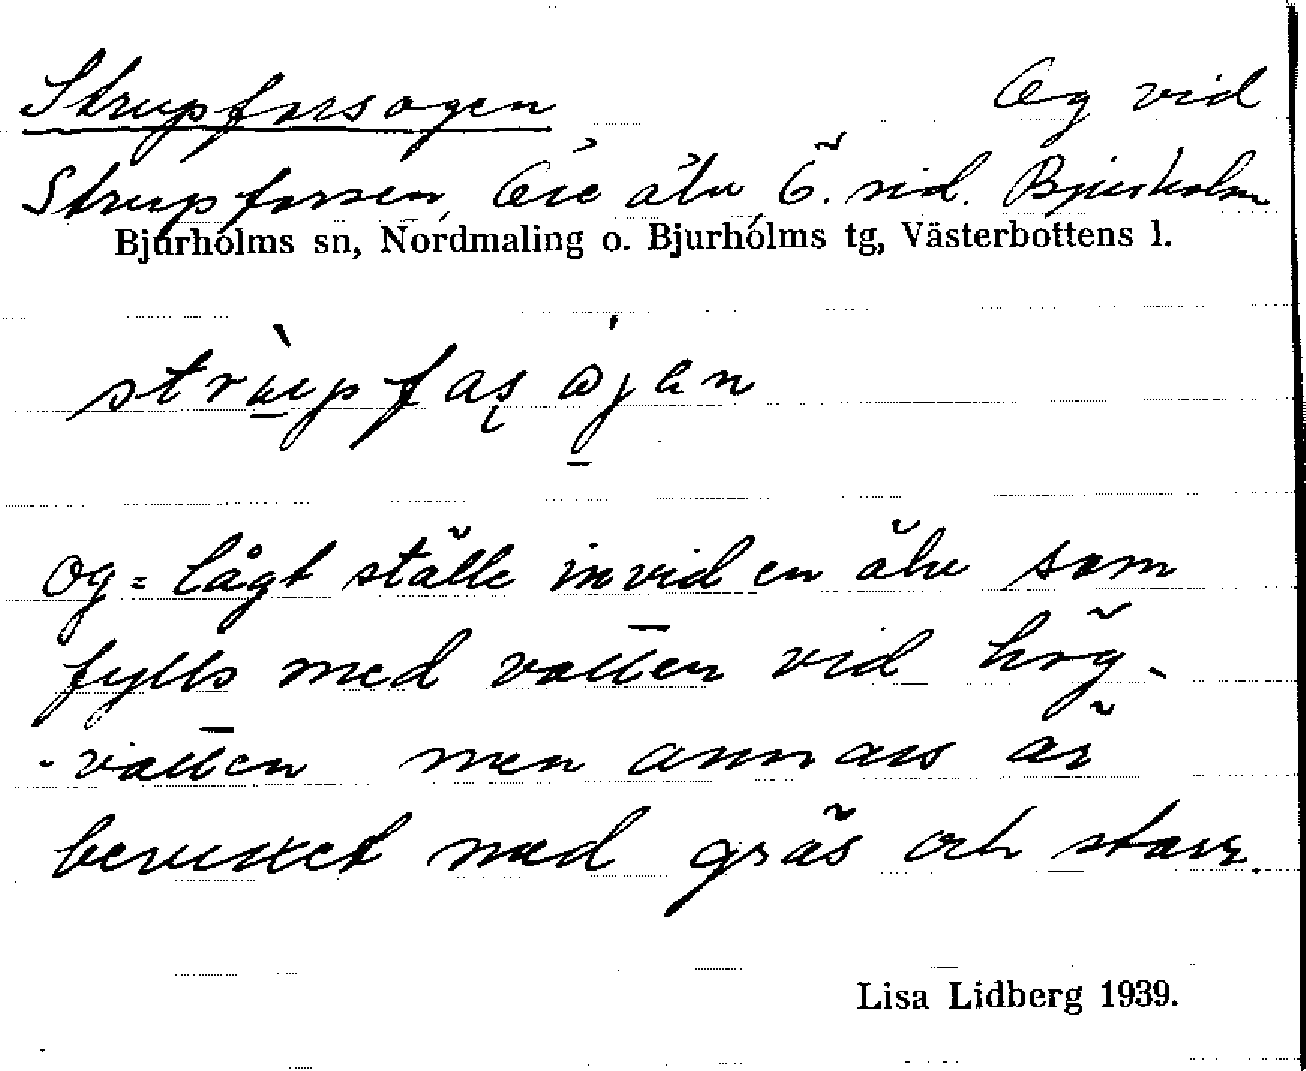 Strupforsogen Og vid
Strupforsen, Öre älv, Ö. sid. Bjurholm
Bjurholms sn, Nordmaling o. Bjurholms tg, Västerbottens l.
og = lågt ställe invid en älv som
fylls med vatten vid hög-
-vatten men annars är
bevuxet med gräs och starr.
Lisa Lidberg 1939.